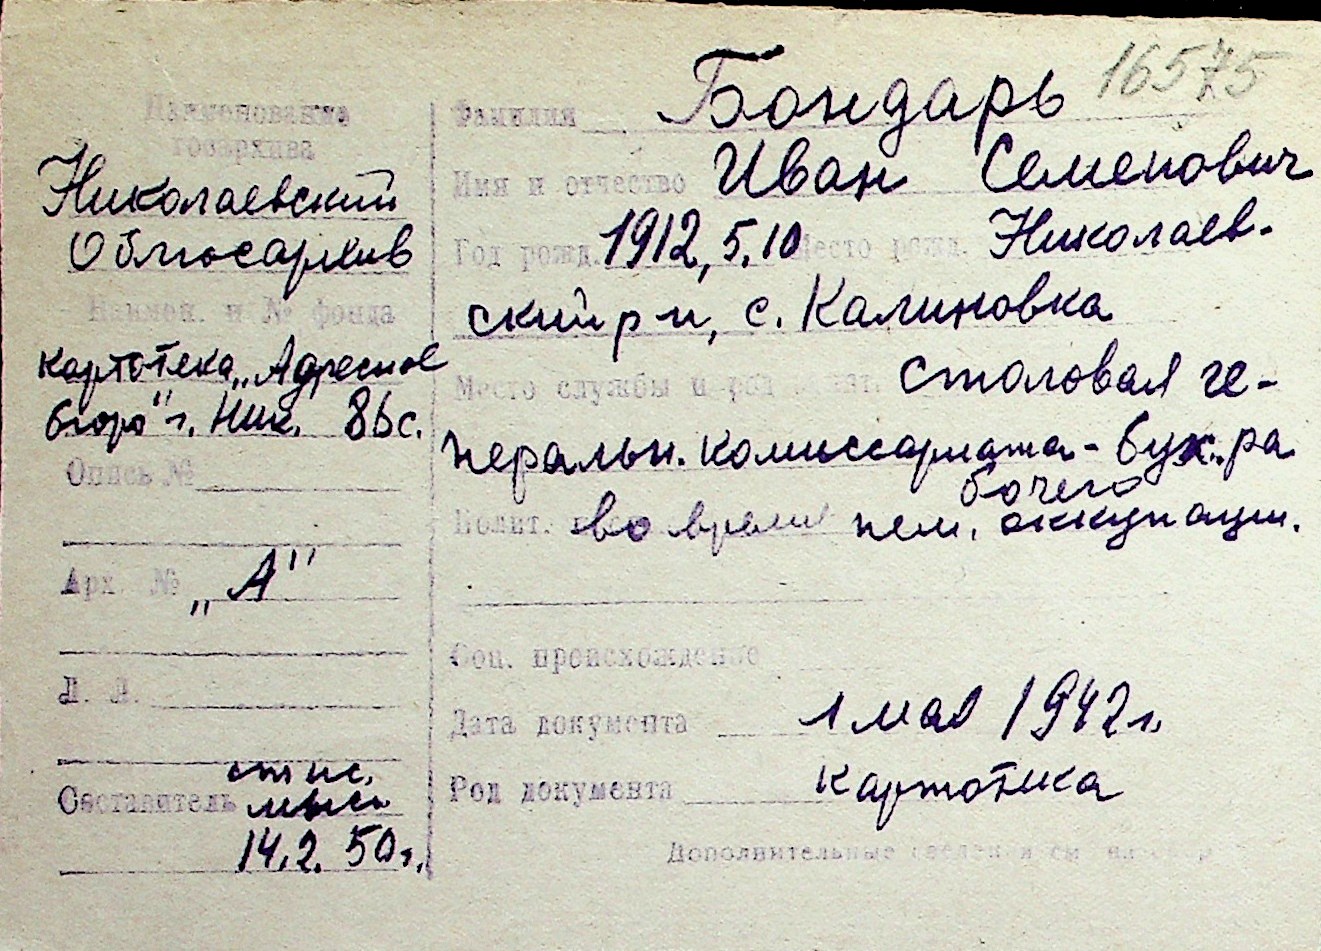 16575
Наименование
госархива
Николаевский
Облгосархив
Наимен. и № фонда
картотека „Адресное
бюро" г. Ник. 86с.
Опись №
Арх. № „А"
Л. Л.
Составитель
14.2.50г.
Фамилия Бондарь
Имя и отчество Иван Семенович
Год рожд. 1912, 5.10 Место рожд. Николаев-
ский р-н, с. Калиновка
Место службы и род занят. столовая ге-
неральн. комиссариата - вух. ра
бочего
во время нем. оккупации.
Соц. происхождение
Дата документа 1 мая 1942 г.
Род документа картотека
Дополнительные сведения см. на обор